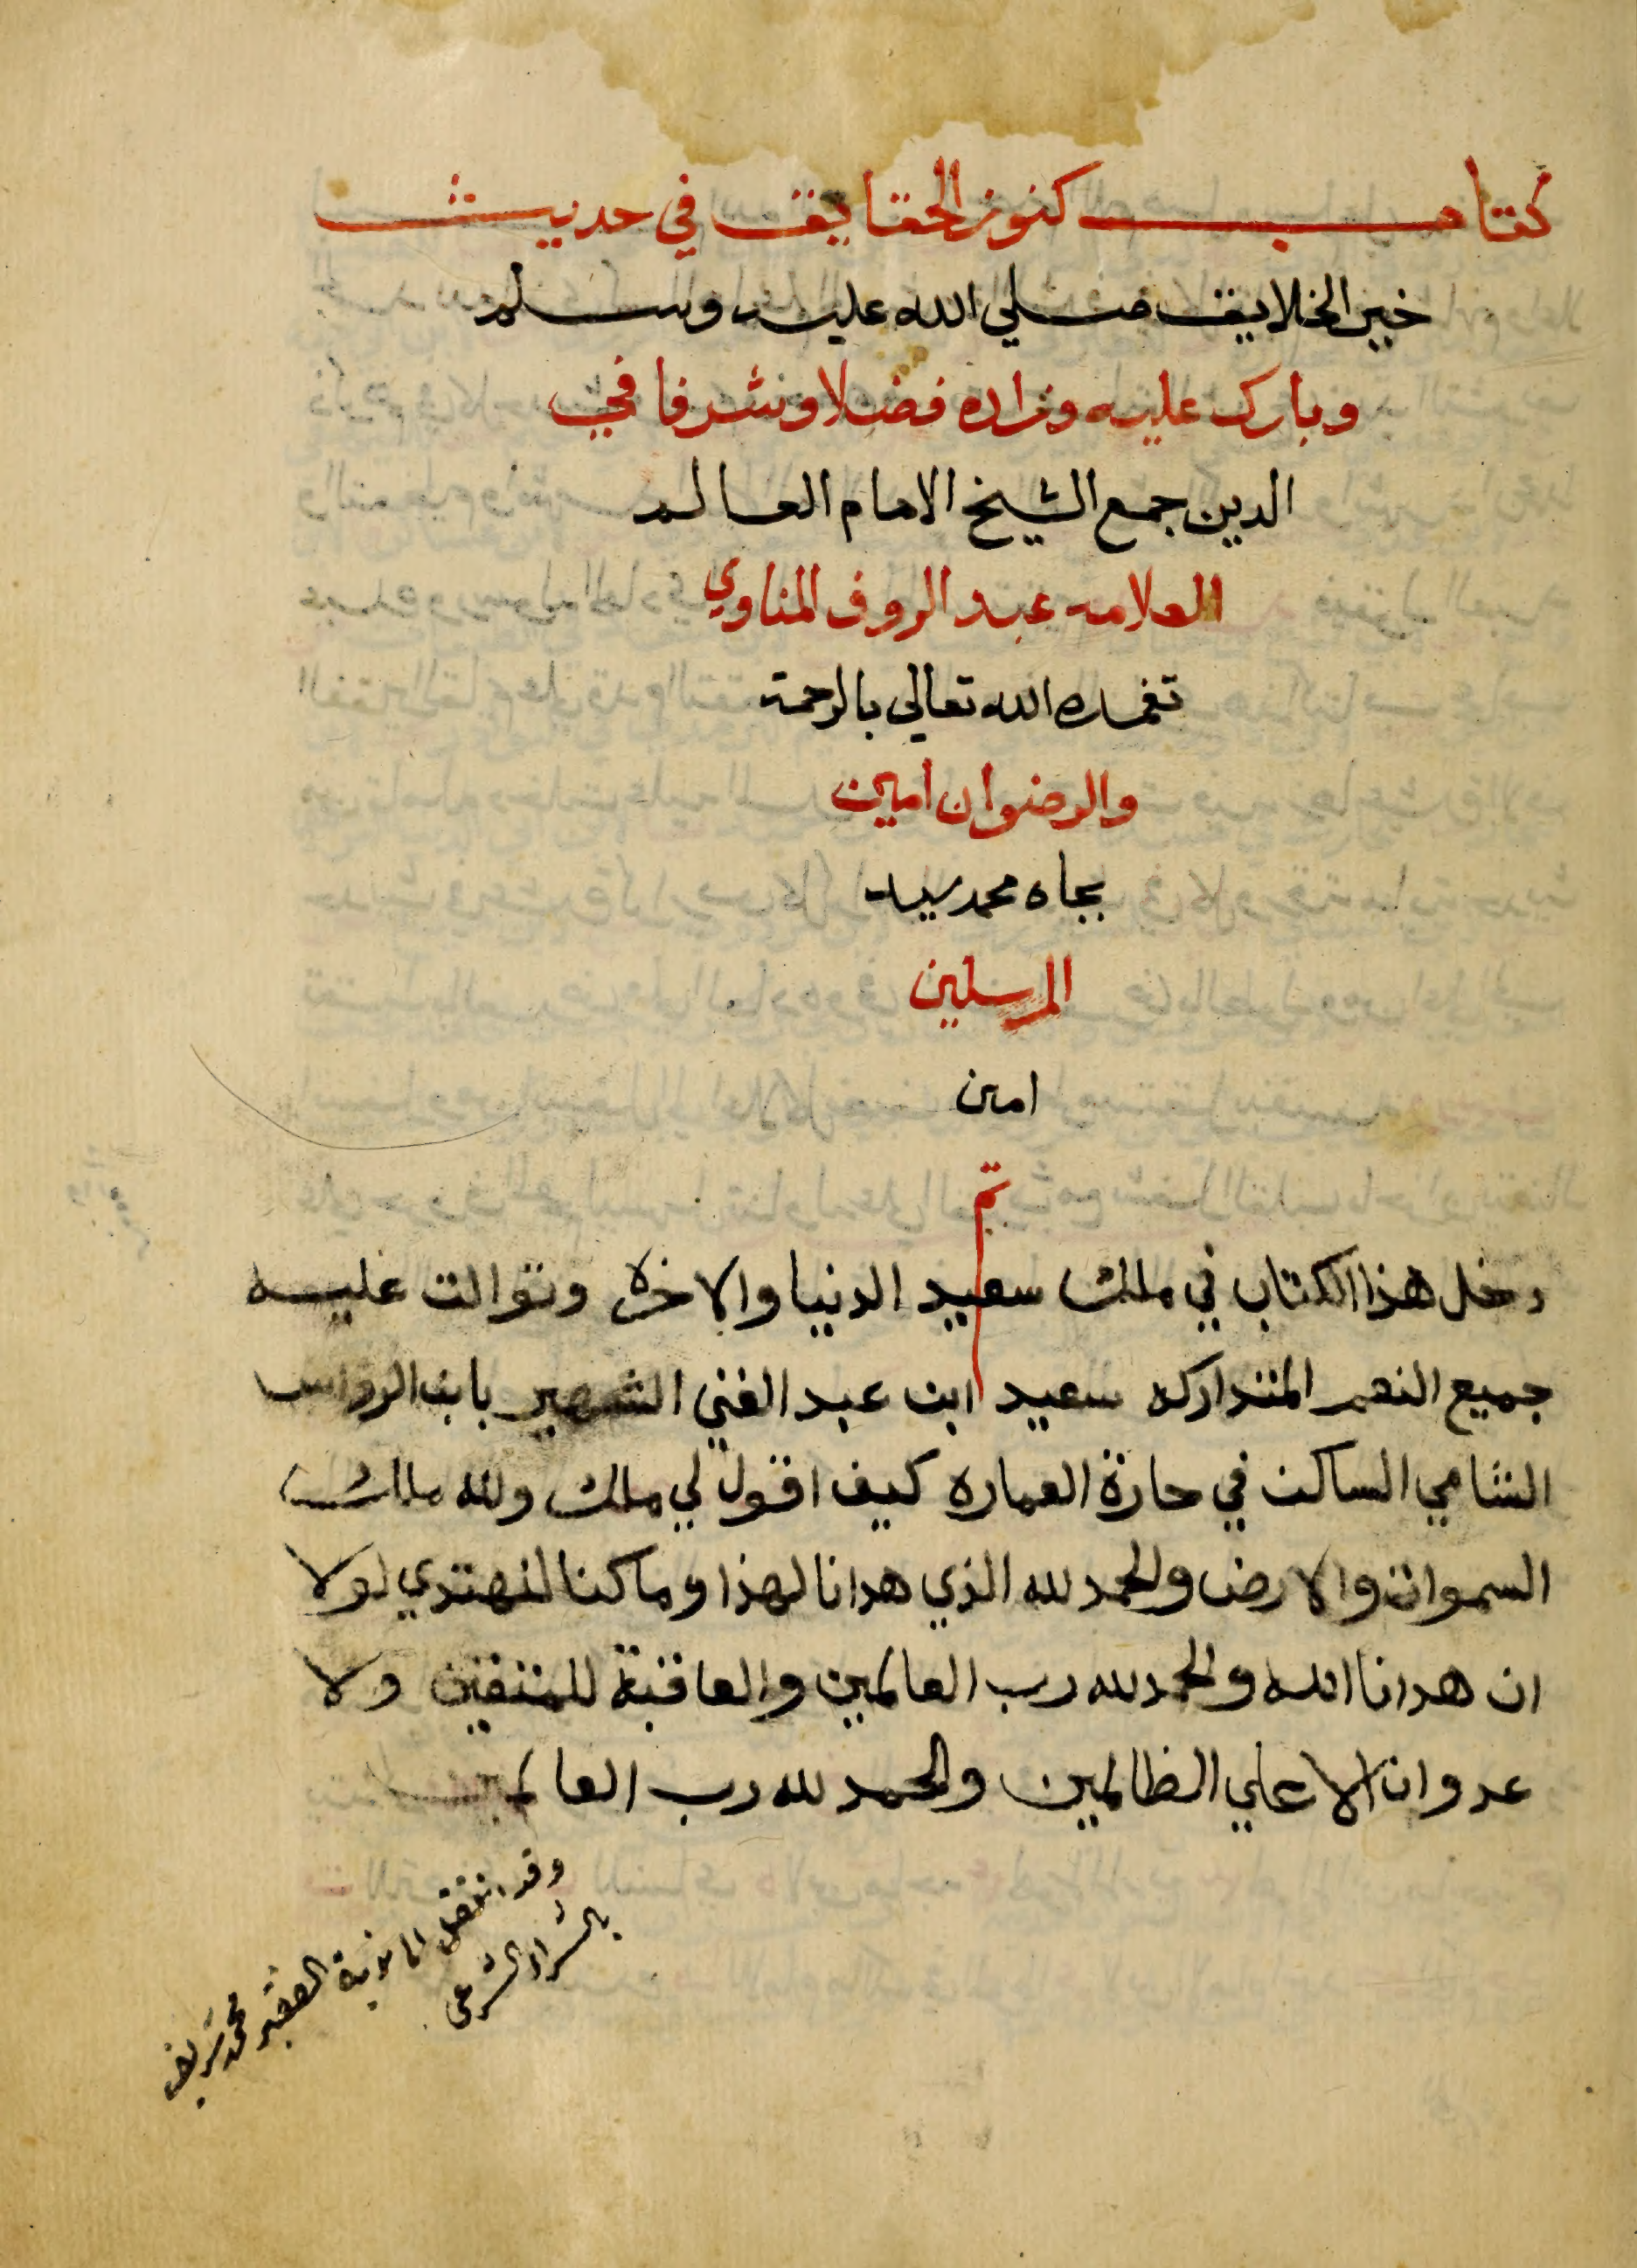 كتاب كنوز الحقايق في حديث
خير الخلايق صلي الله عليه وسلم
وبارك عليه وزاده فضلا وشرفا في
الدين جمع الشيخ الامام العالم
العلامه عبد الروف المناوي
تغمده الله تعالي بالرحمة
والرضوان امين
بجاه محمد سيد
المرسلين
امين
تم
دخل هذا الكتاب في ملك سعيد الدنيا والاخره وتوالت عليه
جميع النعم المتداركه سعيد ابن عبد الغني الشهير بابن الرواس
الشامي الساكن في حارة العماره كيف اقول لي ملك ولله ملك
السموات والارض والحمد لله الذي هدانا لهذا وما كنا لنهتدي لولا
ان هدانا الله والحمد لله رب العالمين والعاقبة للمتقين ولا
عدوان الا علي الظالمين والحمد لله رب العالمين
وقد انتقل الفقير محمد شريف
بالشراء الشرعي